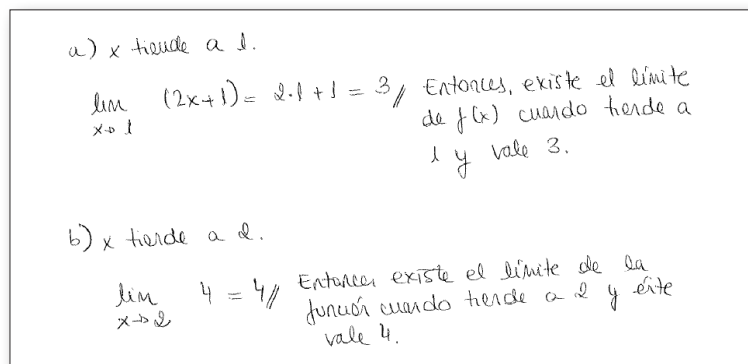 a) x tiende a 1.
lim x→1 (2x+1) = 2·1+1 = 3// Entonces, existe el límite
de f(x) cuando tiende a
1 y vale 3.
b) x tiende a 2.
lim x→2 4 = 4// Entonces existe el límite de la
función cuando tiende a 2 y éste
vale 4.